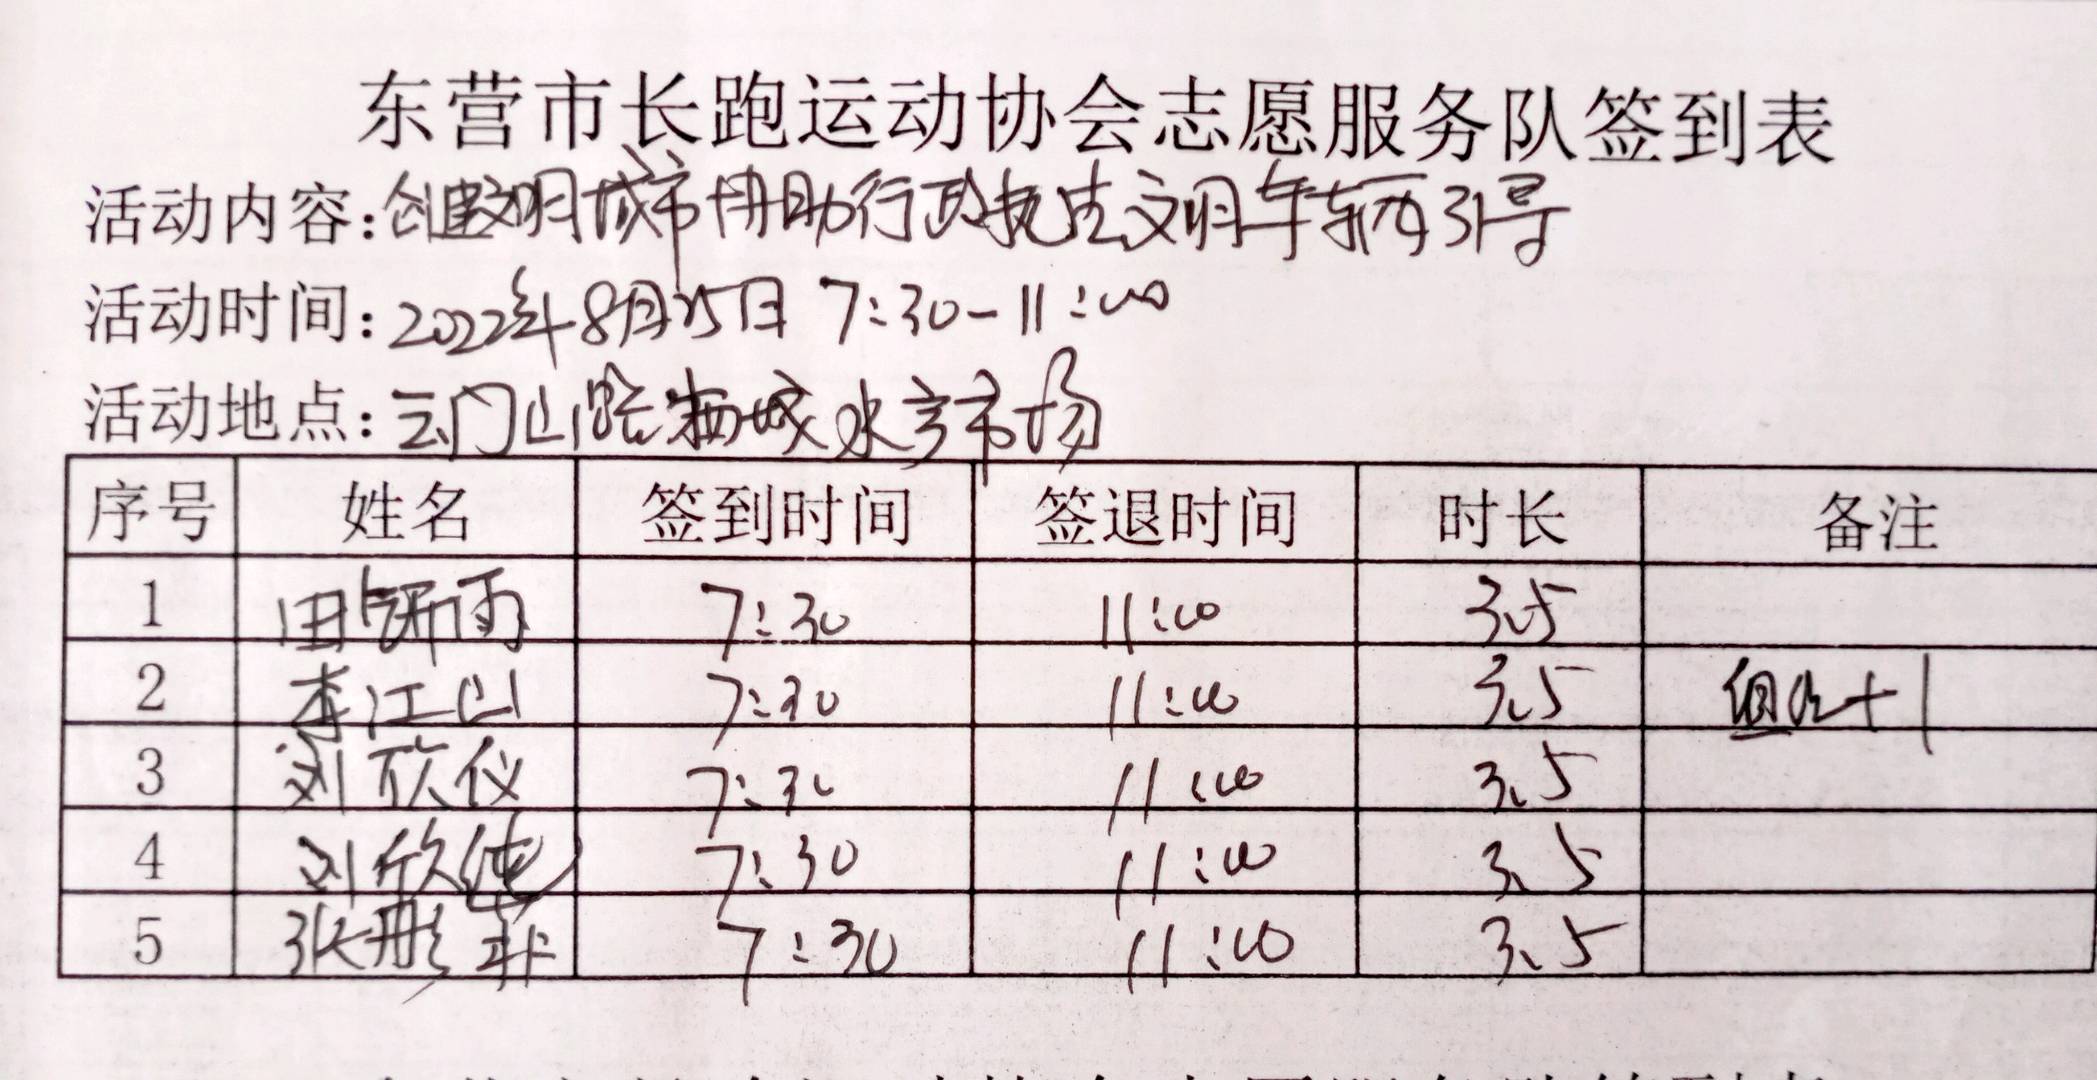 东营市长跑运动协会志愿服务队签到表
活动内容:创建文明城市协助行政执法文明车辆引导
活动时间:2022年8月25日 7:30-11:00
活动地点:云门山路 城水产市场
序号 姓名 签到时间 签退时间 时长 备注
1 田 雨 7:30 11:00 3.5
2 李江山 7:30 11:00 3.5 组织+1
3 刘欣仪 7:30 11:00 3.5
4 刘欣纯 7:30 11:00 3.5
5 张彤菲 7:30 11:00 3.5